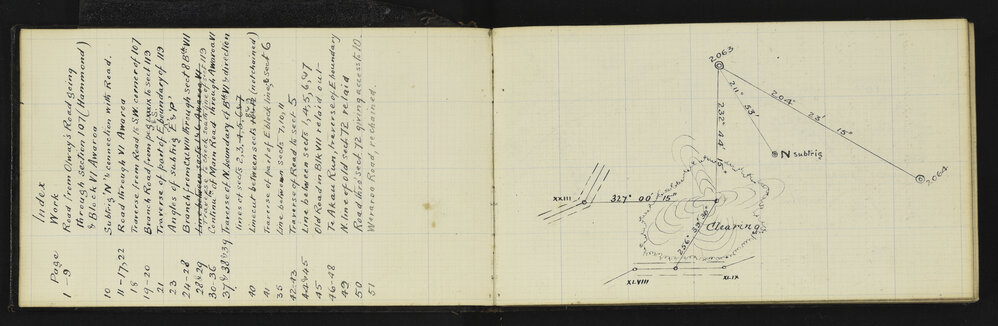 Index
Page Work
1-9 Road from Olway's Road going
through section 107 (Hammond)
& Block VI Awaroa
10 Subtrig 'N''s connection with Road.
11-17, 22 Road through VI Awaroa
18 Traverse from Road to S.W. corner of 107
19-20 Branch Road from peg to sect 113
21 Traverse of part of E boundary of 113
23 Angles of subtrig E & 'P'
24-28 Branch from XXVIII through sect 8 Bk VII
28 & 29 Traverse to check south line of 113
30-36 Contin. of Main Road through Awaroa VI
37 & 38 & 39 Traverse of N. boundary of Bk VI & direction
lines of sects 2, 3, 4, 5, 6, 7
40 Line cut between sects (not chained)
41 Traverse of part of E block line & Sect 6
35 Line between Sects 7, 10, 9
42-43 Traverse of Road to sect. 5
44 & 45 Line between sects 1, 4, 5, 6, 47
45 Old Road in Blk VII relaid out-
46-48 Te Akau Run, traverse of E boundary
49 N. line of old sect 72 relaid
50 Road thro' sect. 72 giving access to 10.
51 Weraroa Road, rechained.
2063
204° 23' 15"
211° 53'
232° 44' 15"
N subtrig
2064
XXIII
327° 00' 15"
Clearing
256° 35' 30"
XLVIII
XLIX